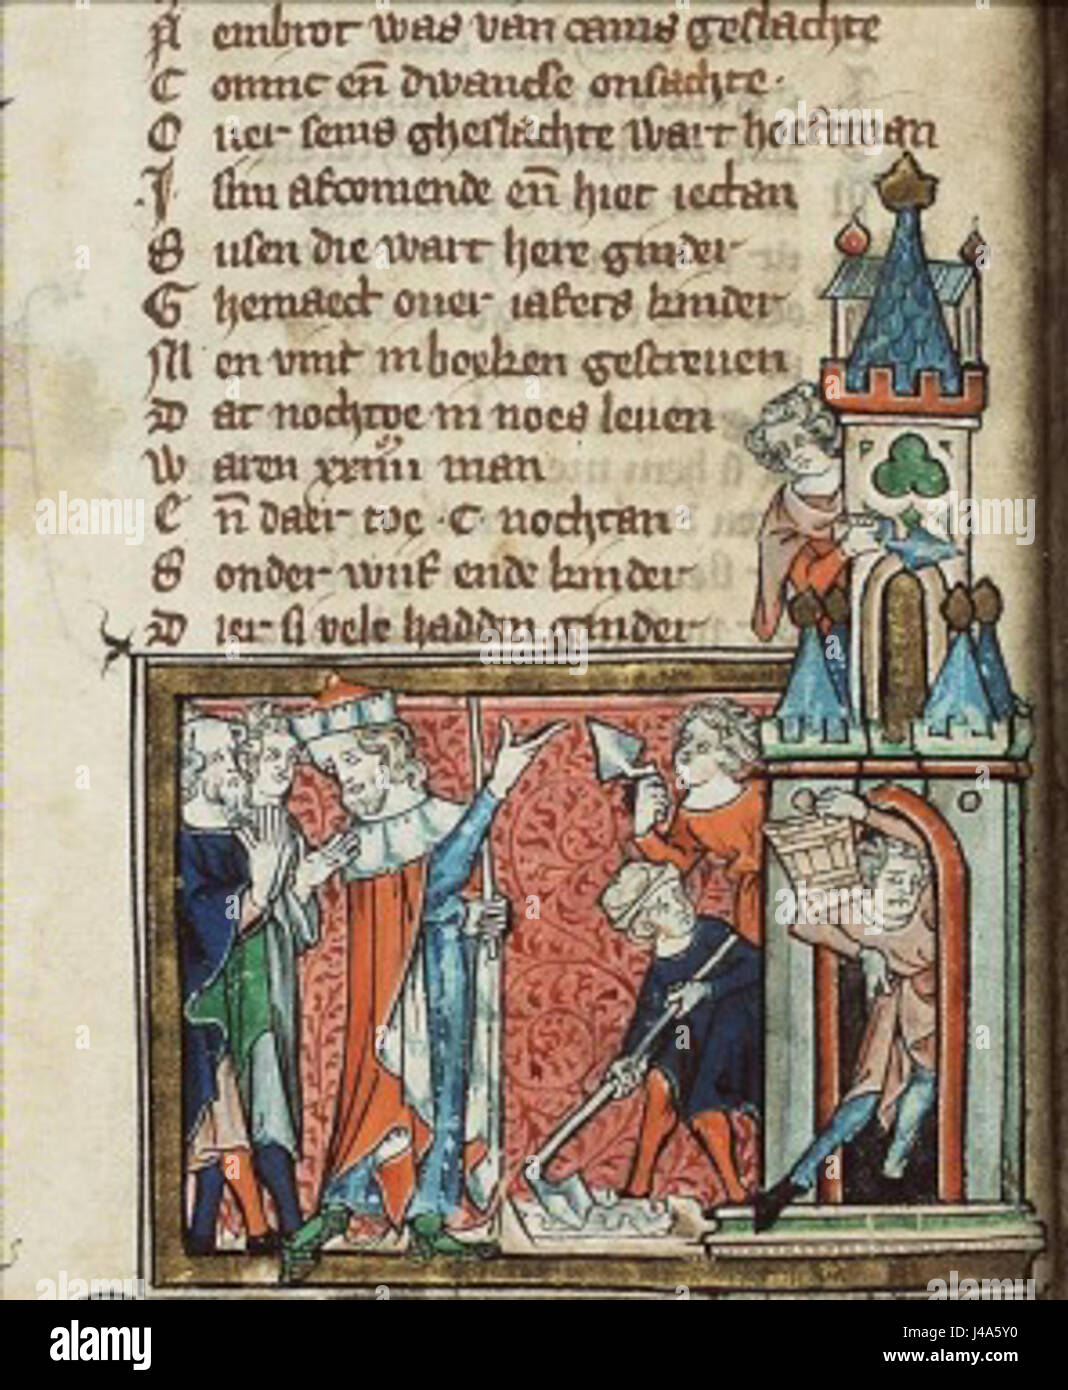 N embrot was van cams geslachte
C oninc en̄ dwancse onsachte ·
O uer sems gheslachte wart hoeftman
J shu afcomende en̄ hiet iectan
S usen die wart here ginder
G hemaect ouer iafets kinder
M en vint in boeken gescreuen
D at nochtoe in noes leuen
W aren xxiiii man
E n̄ daer toe · C · nochtan
S onder wijf ende kinder
D ier si vele hadden ginder
alamy
a
alamy stock photo
J4A5Y0
www.alamy.com